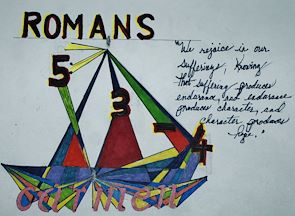 ROMANS
5
3-4
"We rejoice in our
sufferings, knowing
that suffering produces
endurance, and endurance
produces character, and
character produces
hope."